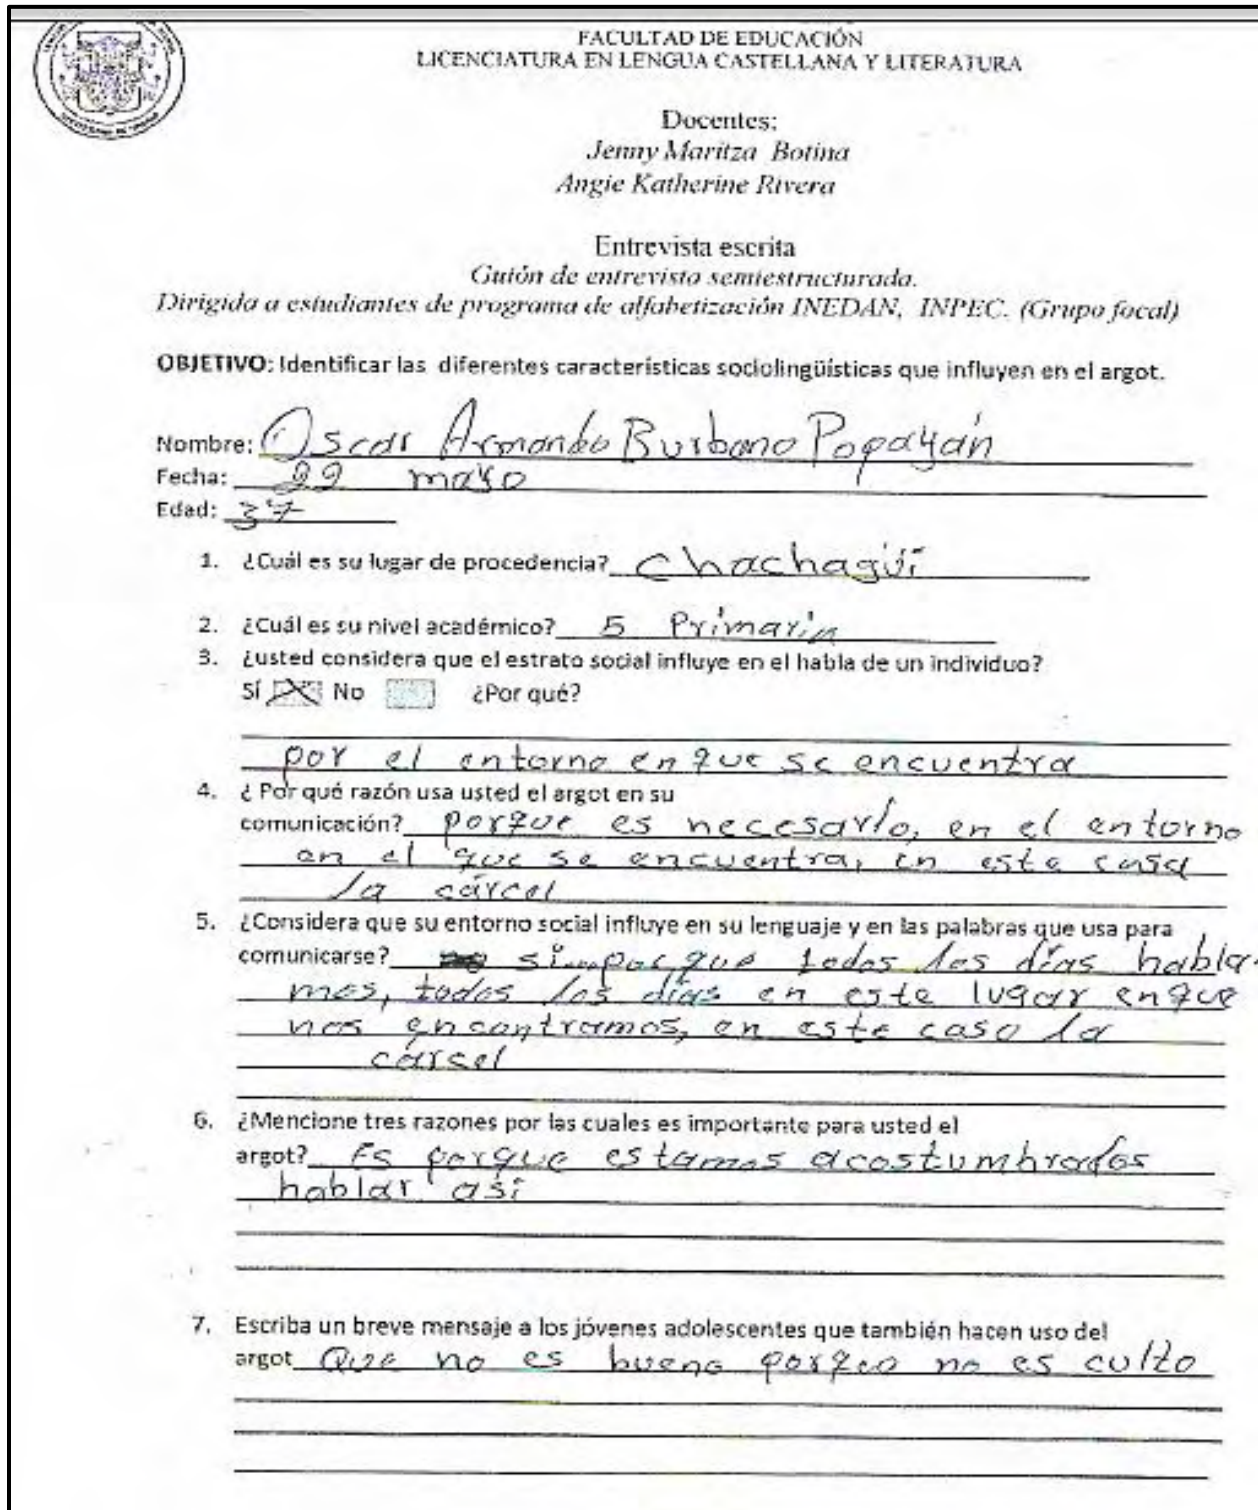 FACULTAD DE EDUCACIÓN
LICENCIATURA EN LENGUA CASTELLANA Y LITERATURA
Docentes:
Jenny Maritza Botina
Angie Katherine Rivera
Entrevista escrita
Guión de entrevista semiestructurada.
Dirigida a estudiantes de programa de alfabetización INEDAN, INPEC. (Grupo focal)
OBJETIVO: Identificar las diferentes características sociolingüísticas que influyen en el argot.
Nombre: Oscar Armando Burbano Popayán
Fecha: 22 mayo
Edad: 37
1. ¿Cuál es su lugar de procedencia? Chachagüí
2. ¿Cuál es su nivel académico? 5 Primaria
3. ¿usted considera que el estrato social influye en el habla de un individuo?
Sí No ¿Por qué?
por el entorno en que se encuentra
4. ¿ Por qué razón usa usted el argot en su
comunicación? porque es necesario, en el entorno
en el que se encuentra, en este casa
la cárcel
5. ¿Considera que su entorno social influye en su lenguaje y en las palabras que usa para
comunicarse? si porque todos los días habla
mos, todos los días en este lugar en que
nos encontramos, en este caso la
cársel
6. ¿Mencione tres razones por las cuales es importante para usted el
argot? Es porque estamos acostumbrados
hablar así
7. Escriba un breve mensaje a los jóvenes adolescentes que también hacen uso del
argot Que no es bueno porqeo no es culto